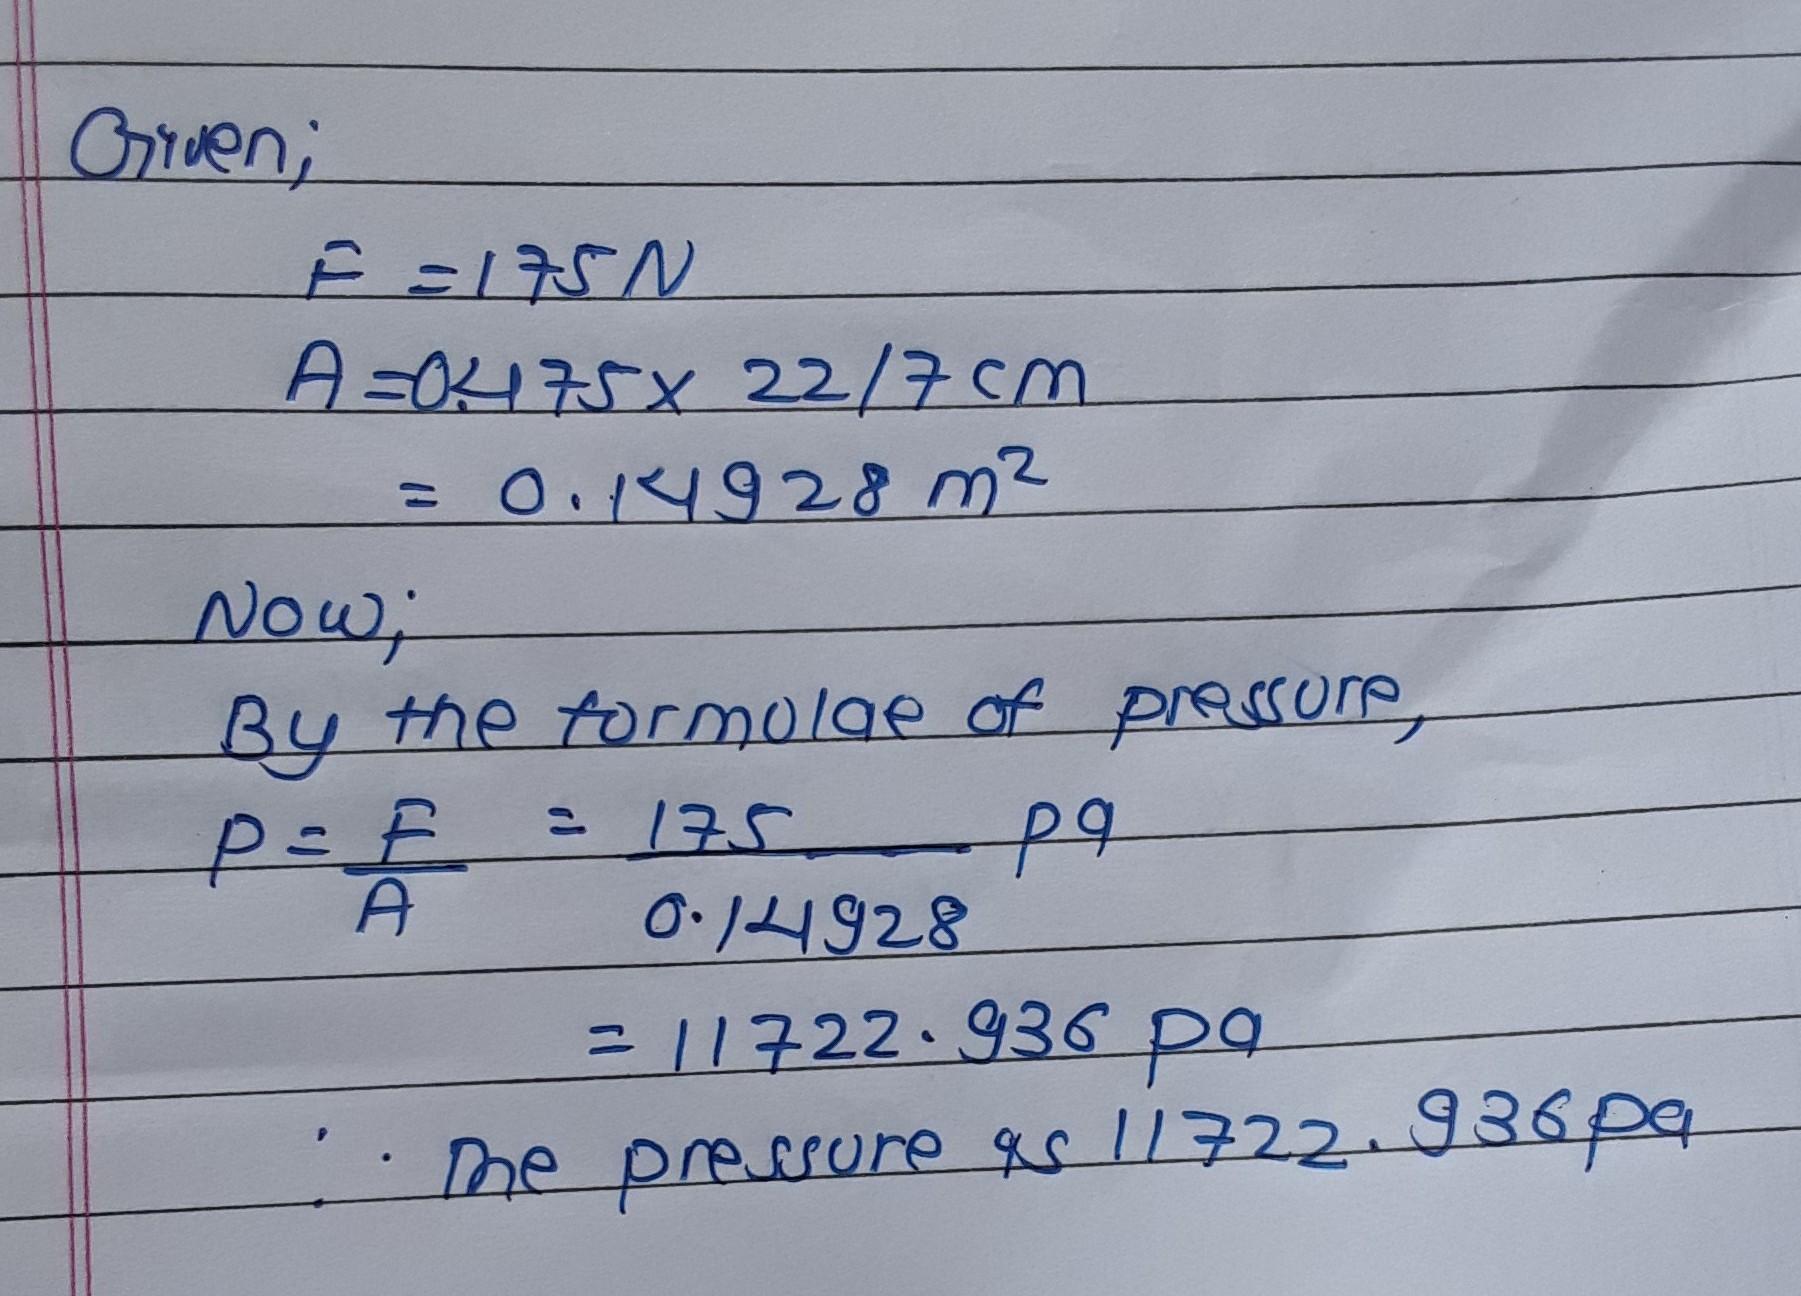 Given;
F = 175 N
A = 0.475 x 22/7 cm
= 0.14928 m²
Now;
By the formulae of pressure,
P = F/A = 175/0.14928 pa
= 11722.936 pa
∴ The pressure is 11722.936 pa